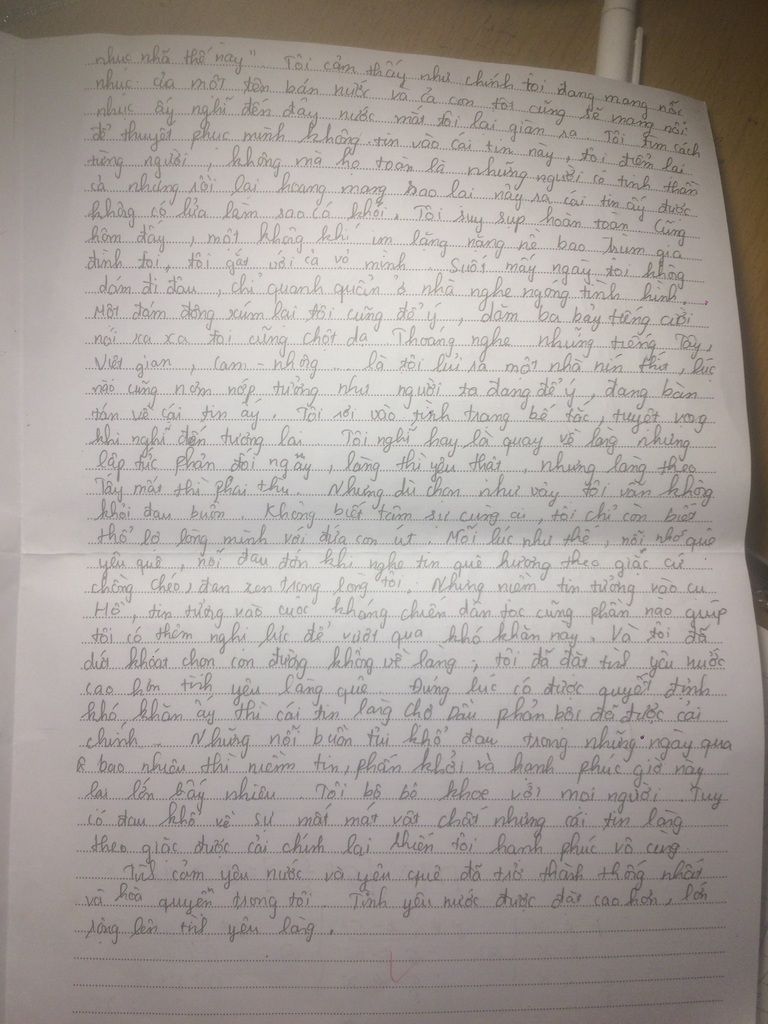 nhục nhã thế này". Tôi cảm thấy như chính tôi đang mang nốc
nhục của một tên bán nước và cả con tôi cũng sẽ mang nỗi
nhục ấy nghĩ đến đây nước mắt tôi lại giàn ra. Tôi tìm cách
để thuyết phục mình không tin vào cái tin này, tôi điểm lại
từng người, không mà họ toàn là những người có tinh thần
cả nhưng rồi lại hoang mang sao lại nảy ra cái tin ấy được
không có lửa làm sao có khói. Tôi suy sụp hoàn toàn. Cũng
hôm đấy, một không khí im lặng nặng nề bao trùm gia
đình tôi, tôi gắt với cả vợ mình. Suốt mấy ngày tôi không
dám đi đâu, chỉ quanh quẩn ở nhà nghe ngóng tình hình.
Một đám đông xúm lại tôi cũng để ý, dăm ba bảy tiếng cười
nói xa xa tôi cũng chột dạ. Thoáng nghe những tiếng Tây,
Việt gian, cam-nhông... là tôi lủi ra một nhà nín thít, lúc
nào cũng nơm nớp tưởng như người ta đang để ý, đang bàn
tán về cái tin ấy. Tôi rơi vào tình trạng bế tắc, tuyệt vọng
khi nghĩ đến tương lai. Tôi nghĩ hay là quay về làng nhưng
lập tức phản đối ngay, làng thì yêu thật, nhưng làng theo
Tây mất thì phải thù. Nhưng dù chọn như vậy tôi vẫn không
khỏi đau buồn. Không biết tâm sự cùng ai, tôi chỉ còn biết
thổ lộ lòng mình với đứa con út. Mỗi lúc như thế, nỗi nhớ quê
yêu quê, nỗi đau đớn khi nghe tin quê hương theo giặc cứ
chồng chéo, đan xen trong lòng tôi. Nhưng niềm tin tưởng vào cụ
Hồ, tin tưởng vào cuộc kháng chiến dân tộc cũng phần nào giúp
tôi có thêm nghị lực để vượt qua khó khăn này. Và tôi đã
dứt khoát chọn con đường không về làng; tôi đã đặt tình yêu nước
cao hơn tình yêu làng quê. Đúng lúc có được quyết định
khó khăn ấy thì cái tin làng Chợ Dầu phản bội đã được cải
chính. Những nỗi buồn tủi khổ đau trong những ngày qua
bao nhiêu thì niềm tin, phấn khởi và hạnh phúc giờ này
lại lớn bấy nhiêu. Tôi bô bô khoe với mọi người. Tuy
có đau khổ về sự mất mát vật chất nhưng cái tin làng
theo giặc được cải chính lại khiến tôi hạnh phúc vô cùng.
Tình cảm yêu nước và yêu quê đã trở thành thống nhất
và hoà quyện trong tôi. Tình yêu nước được đặt cao hơn, lớn
rộng lên tình yêu làng.